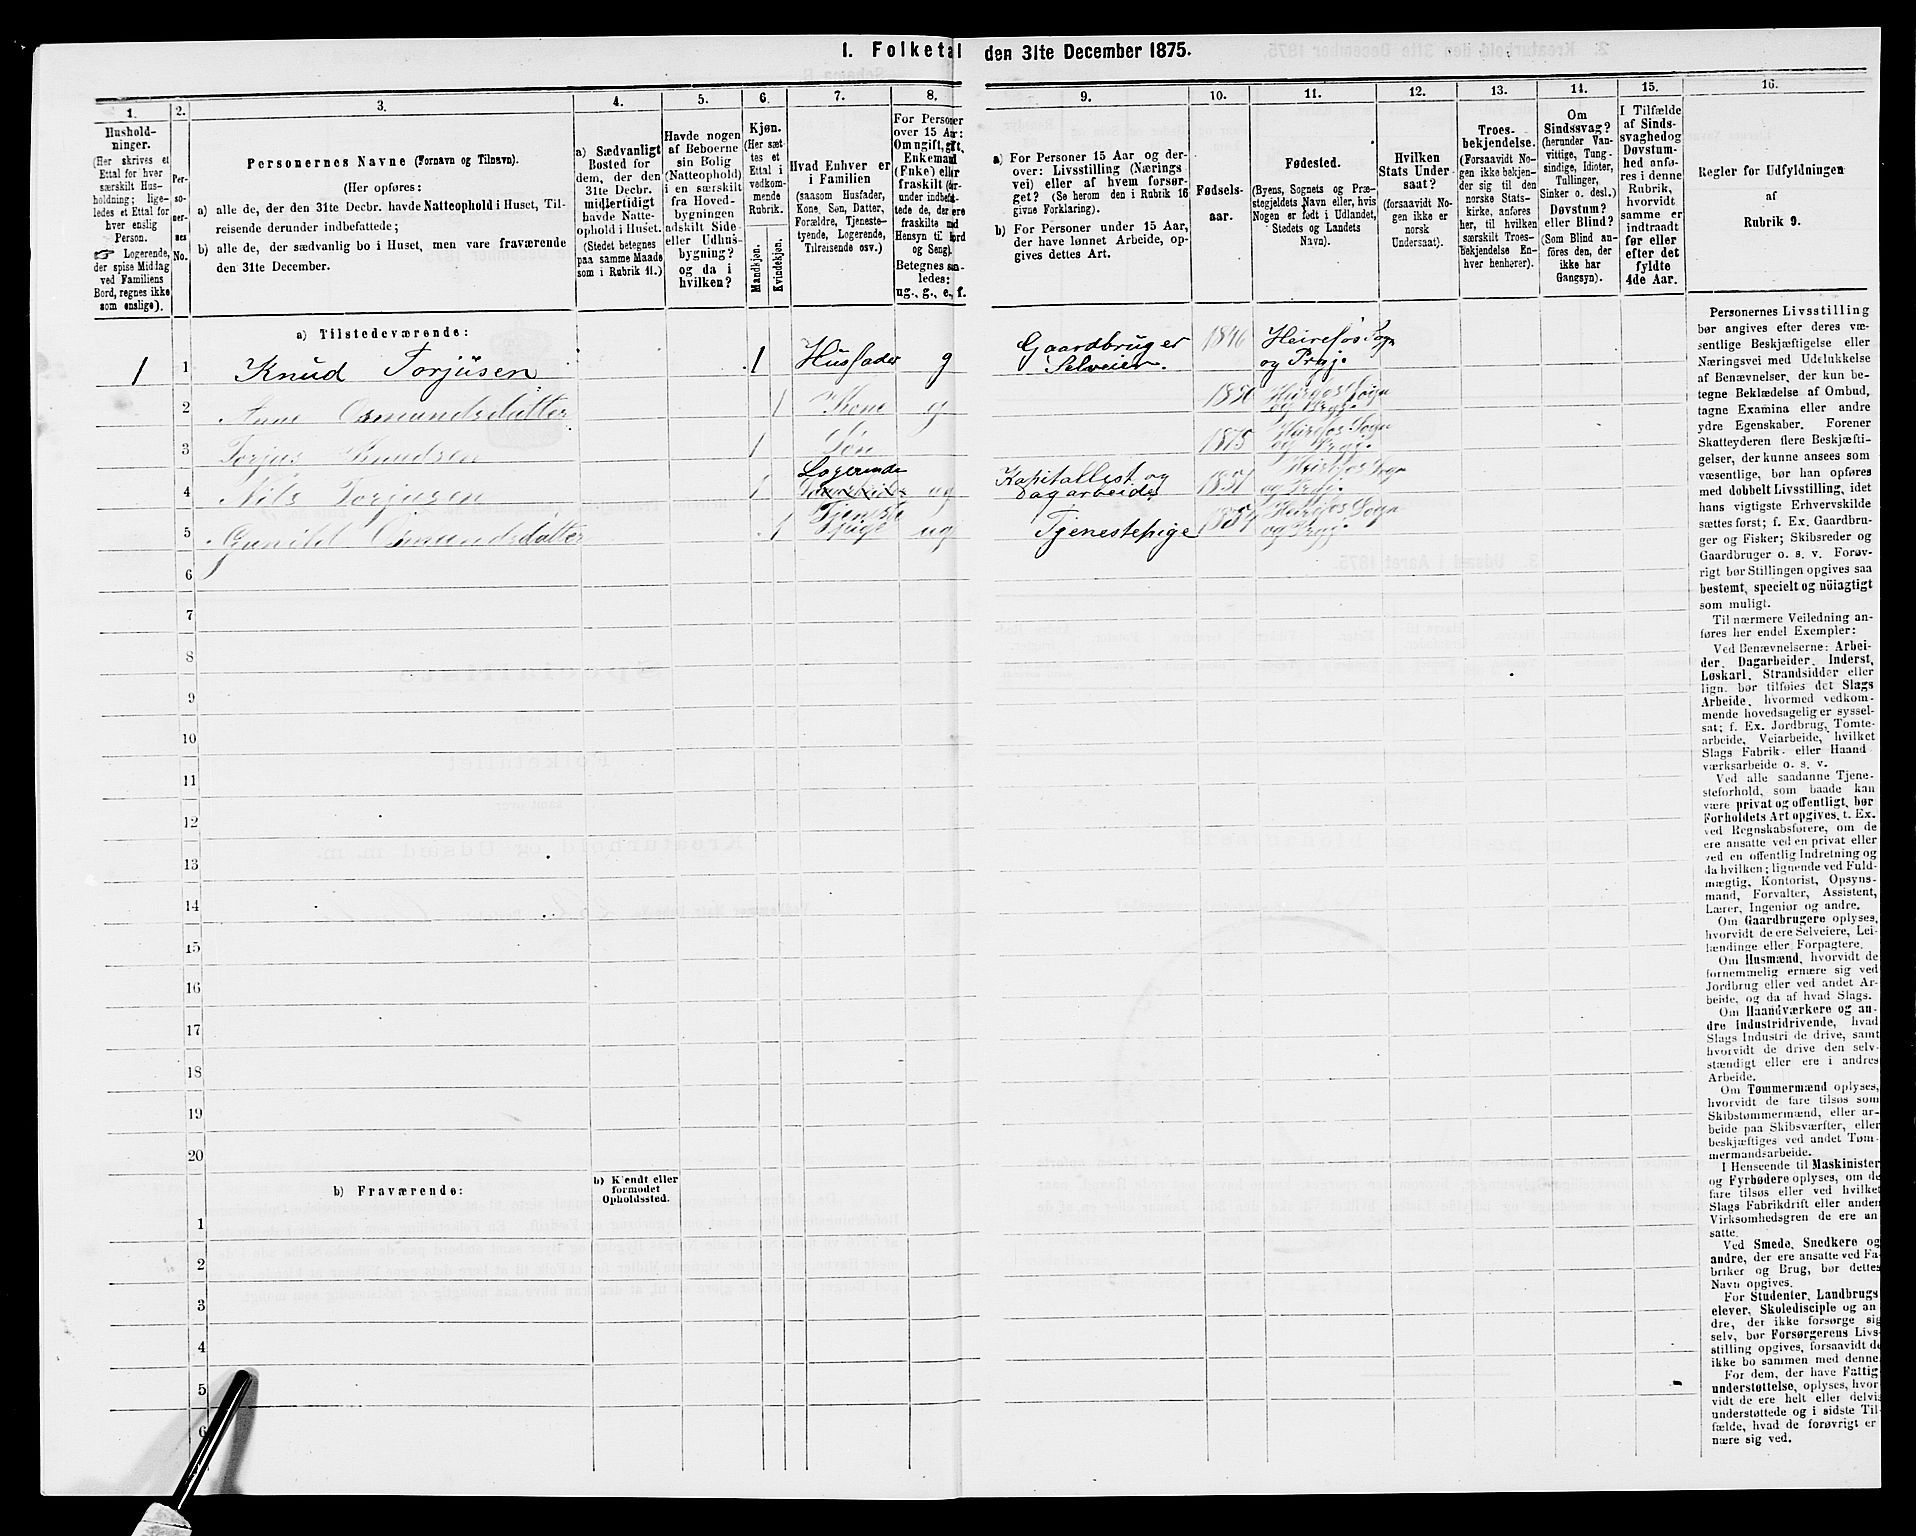 I. Folketal den 31te December 1875.
1.
Hushold-
ninger.
(Her skrives et
Ettal for hver
særskilt Hus-
holdning; lige-
ledes et Ettal for
hver enslig
Person.
☞ Logerende,
der spise Middag
ved Familiens
Bord, regnes ikke
som enslige).
2.
Per-
so-
ner-
nes
No.
3.
Personernes Navne (Fornavn og Tilnavn).
(Her opføres:
a) alle de, der den 31te Decbr. havde Natteophold i Huset, Til-
reisende derunder indbefattede;
b) alle de, der sædvanlig bo i Huset, men vare fraværende
den 31te December.
4.
a) Sædvanligt
Bosted for
dem, der den
31te Decbr.
midlertidigt
havde Natte-
ophold i Huset.
(Stedet betegnes
paa samme Maade
som i Rubrik 11.)
5.
Havde nogen
af Beboerne
sin Bolig
(Natteophold)
i en særskilt
fra Hoved-
bygningen
adskilt Side-
eller Udhus-
bygning?
og da i
hvilken?
6.
Kjøn.
(Her sæt-
tes et
Ettal i
vedkom-
mende
Rubrik.
Mandkjøn.
Kvindekjøn.
7.
Hvad Enhver er
i Familien
(saasom Husfader,
Kone, Søn, Datter,
Forældre, Tjeneste-
tyende, Logerende,
Tilreisende osv.)
8.
For Personer
over 15 Aar:
Om ugift, gift,
Enkemand
(Enke) eller
fraskilt (der-
under indbefat-
tede de, der ere
fraskilte med
Hensyn til Bord
og Seng).
Betegnes saa-
ledes:
ug., g., e., f.
9.
a) For Personer 15 Aar og der-
over: Livsstilling (Nærings-
vei) eller af hvem forsør-
get? (Se herom den i Rubrik 16
givne Forklaring).
b) For Personer under 15 Aar,
der have lønnet Arbeide, op-
gives dettes Art.
10.
Fødsels-
aar.
11.
Fødested.
(Byens, Sognets og Præ-
stegjeldets Navn eller, hvis
Nogen er født i Udlandet,
Stedets og Landets
Navn).
12.
Hvilken
Stats Under-
saat?
(forsaavidt No-
gen ikke er
norsk
Undersaat).
13.
Troes-
bekjendelse.
(Forsaavidt No-
gen ikke bekjen-
der sig til den
norske Stats-
kirke, anføres
her, til hvilken
særskilt Troes-
bekjendelse En-
hver henhører).
14.
Om
Sindssvag?
(herunder Van-
vittige, Tung-
sindige, Idioter,
Tullinger,
Sinker o. desl.)
Døvstum?
eller Blind?
(Som Blind an-
føres den, der
ikke har
Gangsyn).
15.
I Tilfælde
af Sinds-
svaghed og
Døvstum-
hed anfø-
res i denne
Rubrik,
hvorvidt
samme er
indtraadt
før eller
efter det
fyldte
4de Aar.
16.
Regler for Udfyldningen
af
Rubrik 9.
a) Tilstedeværende:
1 1 Knud Torjusen 1 Husfader g Gaardbruger Selveier. 1846 Heirefos Sogn og Prgj.
2 Anne Osmundsdatter 1 Kone g Heirefos Sogn og Prgj.
3 Torjus Knudsen 1 Søn 1875 Heirefos Sogn og Prgj.
4 Nils Torjusen 1 Logerende ug Kapitallist og Dagarbeider 1851 Heirefos Sogn og Prgj.
5 Gunild Osmundsdatter 1 Tjeneste Pige ug Tjenestepige Heirefos Sogn og Prgj.
6
7
8
9
10
11
12
13
14
15
16
17
18
19
20
b) Fraværende:
b) Kjendt eller
formodet
Opholdssted.
1
2
3
4
5
6
Personernes Livsstilling
bør angives efter deres væ-
sentlige Beskjæftigelse eller
Næringsvei med Udelukkelse
af Benævnelser, der kun be-
tegne Beklædelse af Ombud,
tagne Examina eller andre
ydre Egenskaber. Forener
Skatteyderen flere Beskjæfti-
gelser, der kunne ansees som
væsentlige, bør han opføres
med dobbelt Livsstilling, idet
hans vigtigste Erhvervskilde
sættes først; f. Ex. Gaardbru-
ger og Fisker; Skibsreder og
Gaardbruger o. s. v. Forøv-
rigt bør Stillingen opgives saa
bestemt, specielt og nöiagtigt
som muligt.
Til nærmere Veiledning an-
føres her endel Exempler:
Ved Benævnelserne: Arbei-
der, Dagarbeider, Inderst,
Løskarl, Strandsidder eller
lign. bør tilføies det Slags
Arbeide, hvormed vedkom-
mende hovedsagelig er syssel-
sat; f. Ex. Jordbrug, Tomte-
arbeide, Veiarbeide, hvilket
Slags Fabrik- eller Haand-
værksarbeide o. s. v.
Ved alle saadanne Tjene-
steforhold, som baade kan
være privat og offentligt, bør
Forholdets Art opgives, f. Ex.
ved Regnskabsførere, om de
ere ansatte ved en privat eller
ved en offentlig Indretning og
da hvilken; lignende ved Fuld-
mægtig, Kontorist, Opsyns-
mand, Forvalter, Assistent,
Lærer, Ingeniør og andre.
Om Gaardbrugere oplyses,
hvorvidt de ere Selveiere, Lei-
lændinge eller Forpagtere.
Om Husmænd, hvorvidt de
fornemmelig ernære sig ved
Jordbrug eller ved andet Ar-
beide, og da af hvad Slags.
Om Haandværkere og an-
dre Industridrivende, hvad
Slags Industri de drive, samt
hvorvidt de drive den selv-
stændigt eller ere i andres
Arbeide.
Om Tømmermænd oplyses,
hvorvidt de fare tilsøs som
Skibstømmermænd, eller ar-
beide paa Skibsværfter, eller
beskjæftiges ved andet Tøm-
mermandsarbeide.
I Henseende til Maskinister
og Fyrbødere oplyses, om de
fare tilsøs eller ved hvilket
Slags Fabrikdrift eller anden
Virksomhedsgren de ere an-
satte.
Ved Smede, Snedkere og
andre, der ere ansatte ved Fa-
briker og Brug, bør dettes
Navn opgives.
For Studenter, Landbrugs-
elever, Skoledisciple og an-
dre, der ikke forsørge sig
selv, bør Forsørgerens Livs-
stilling opgives, forsaavidt de
ikke bo sammen med denne.
For dem, der have Fattig-
understøttelse, oplyses, hvor-
vidt de ere helt eller delvis
understøttede og i sidste Til-
fælde, hvad de forøvrigt er-
nære sig ved.